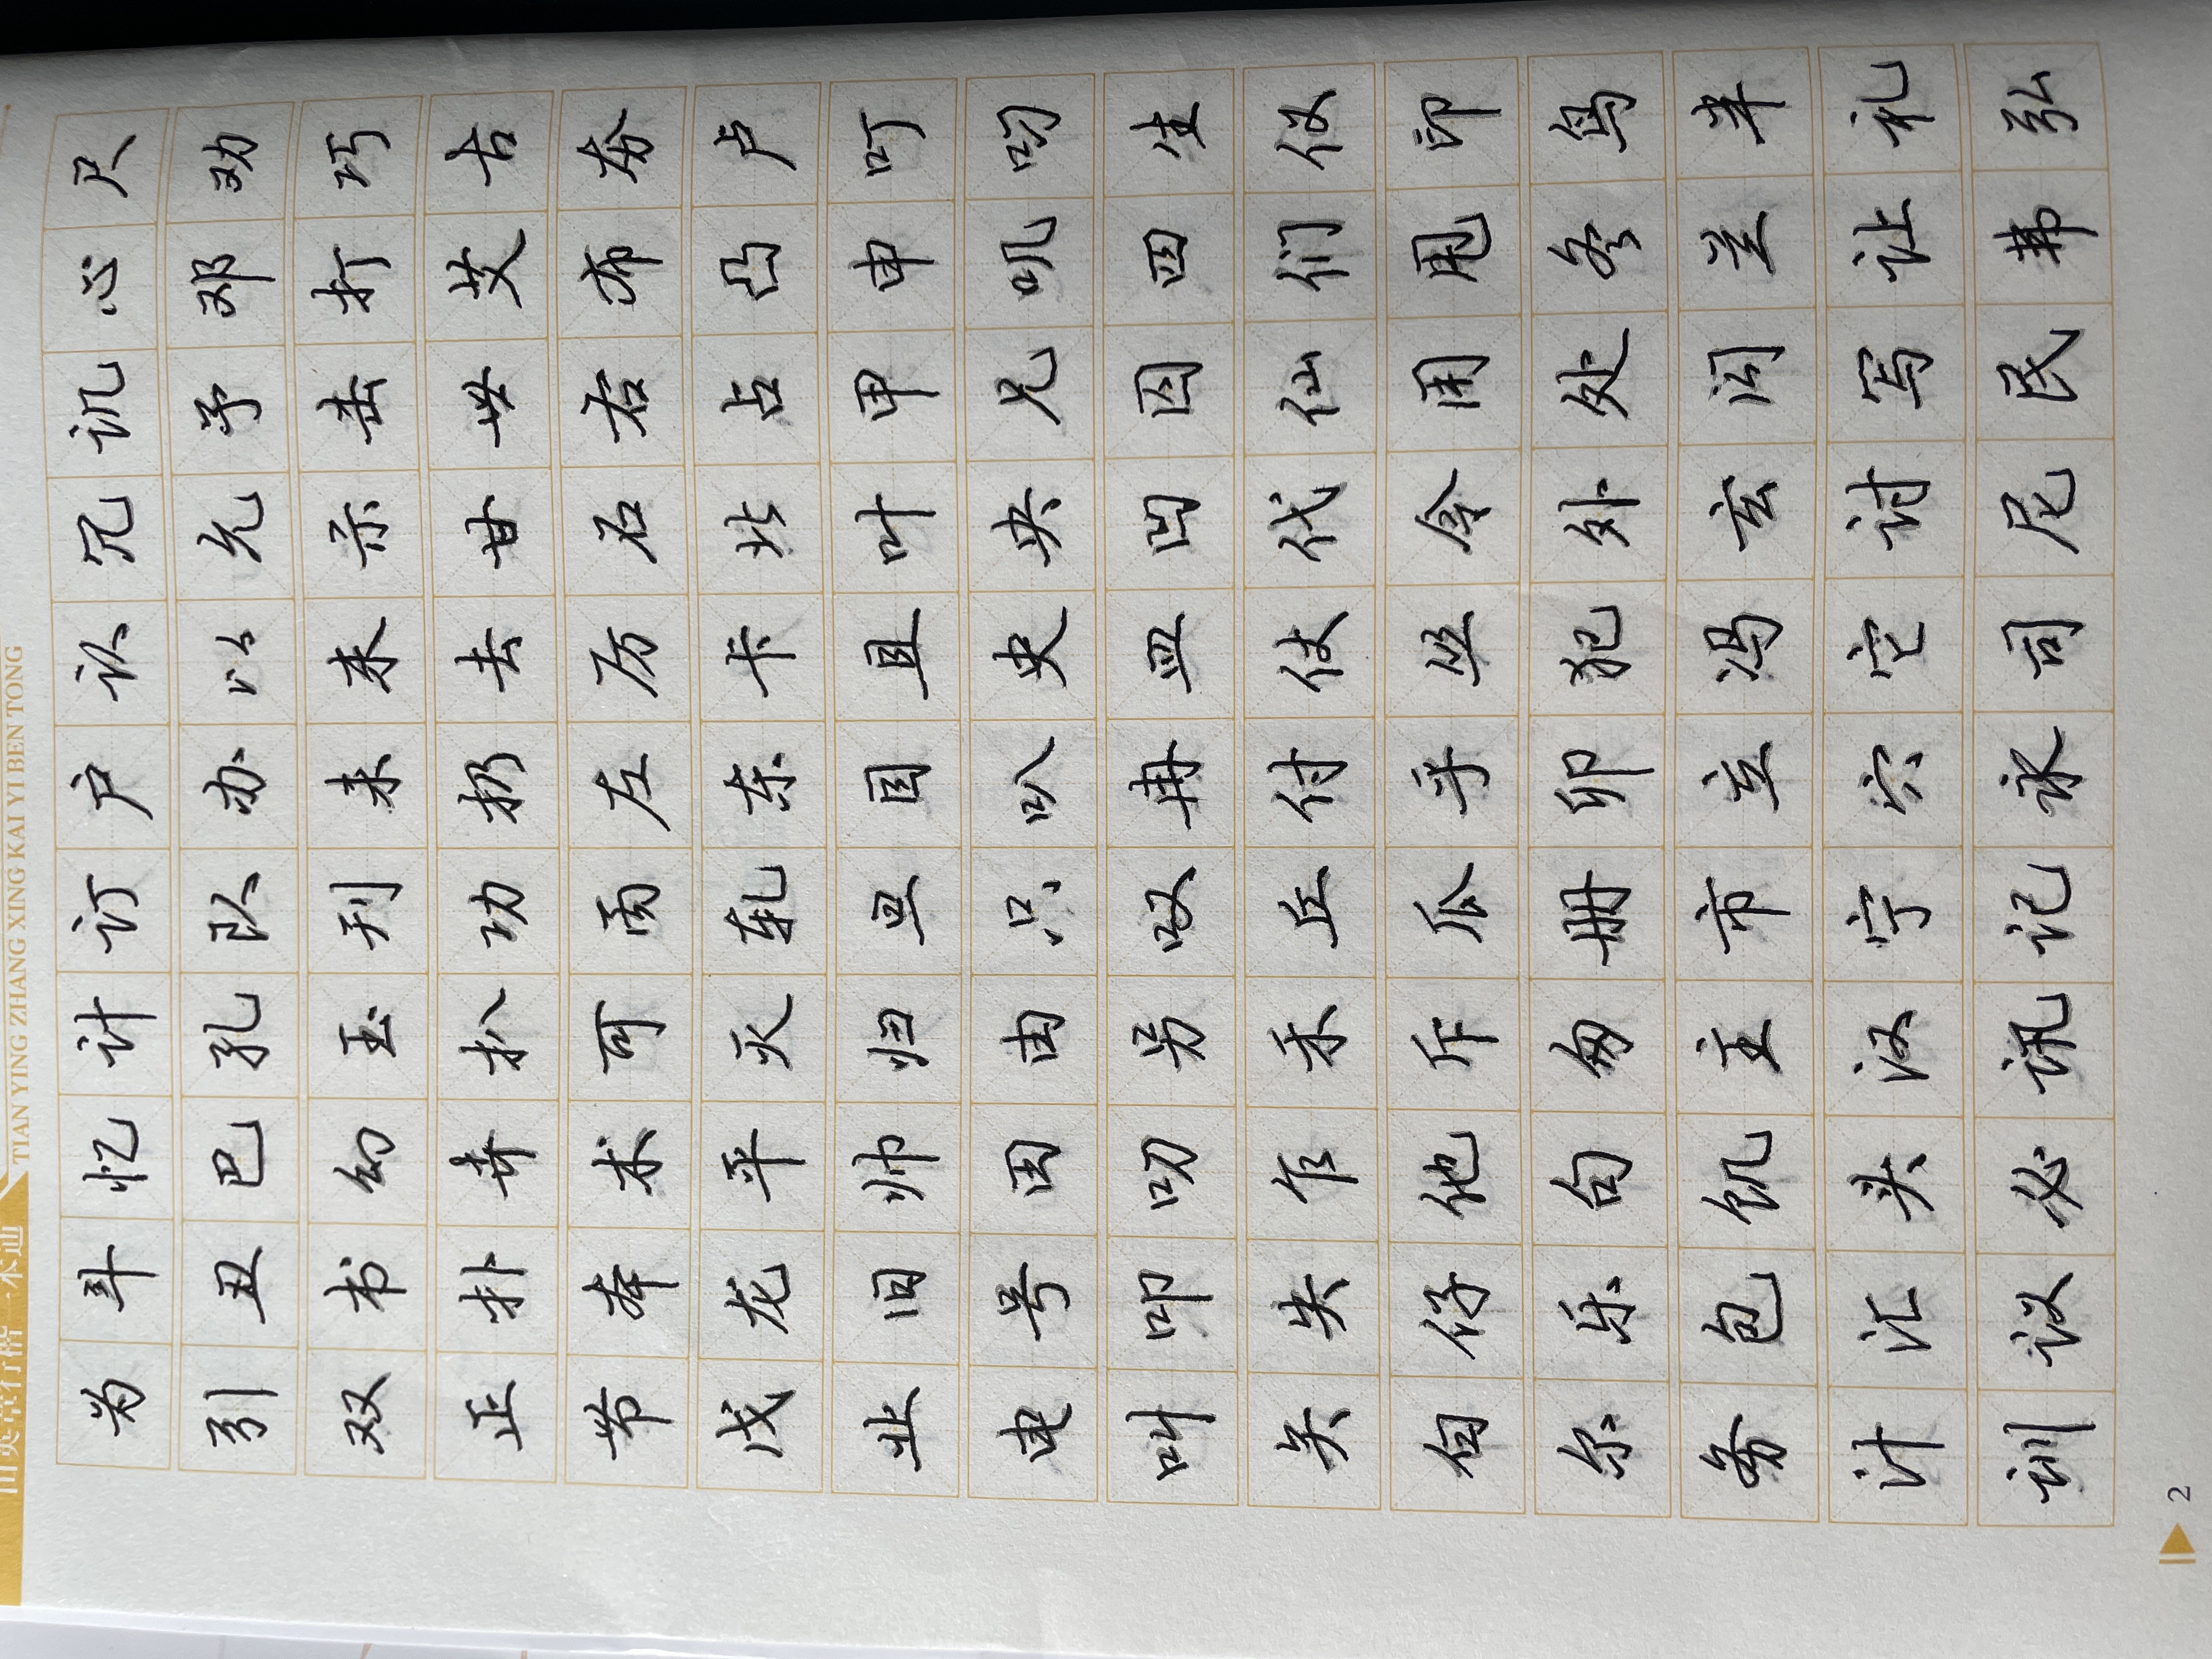 田英章行楷一本通
TIAN YING ZHANG XING KAI YI BEN TONG
为斗忆计订户认冗讥心尺
引丑巴孔队办以允予邓劝
双书幻玉刊未末示击打巧
正扑卉扒功扔去甘世艾古
节本术可丙左厉石右布夯
戊龙平灭轧东卡北占凸卢
业旧帅归旦目且叶甲申叮
电号田由只叭史央兄叽叼
叫叩叨另叹冉皿凹囚四生
矢失乍禾丘付仗代仙们仪
白仔他斥瓜乎丛令用甩印
尔乐句匆册卯犯外处冬鸟
务包饥主市立冯玄闪兰半
汁汇头汉宁穴它讨写让礼
训议必讯记永司尼民弗弘
2